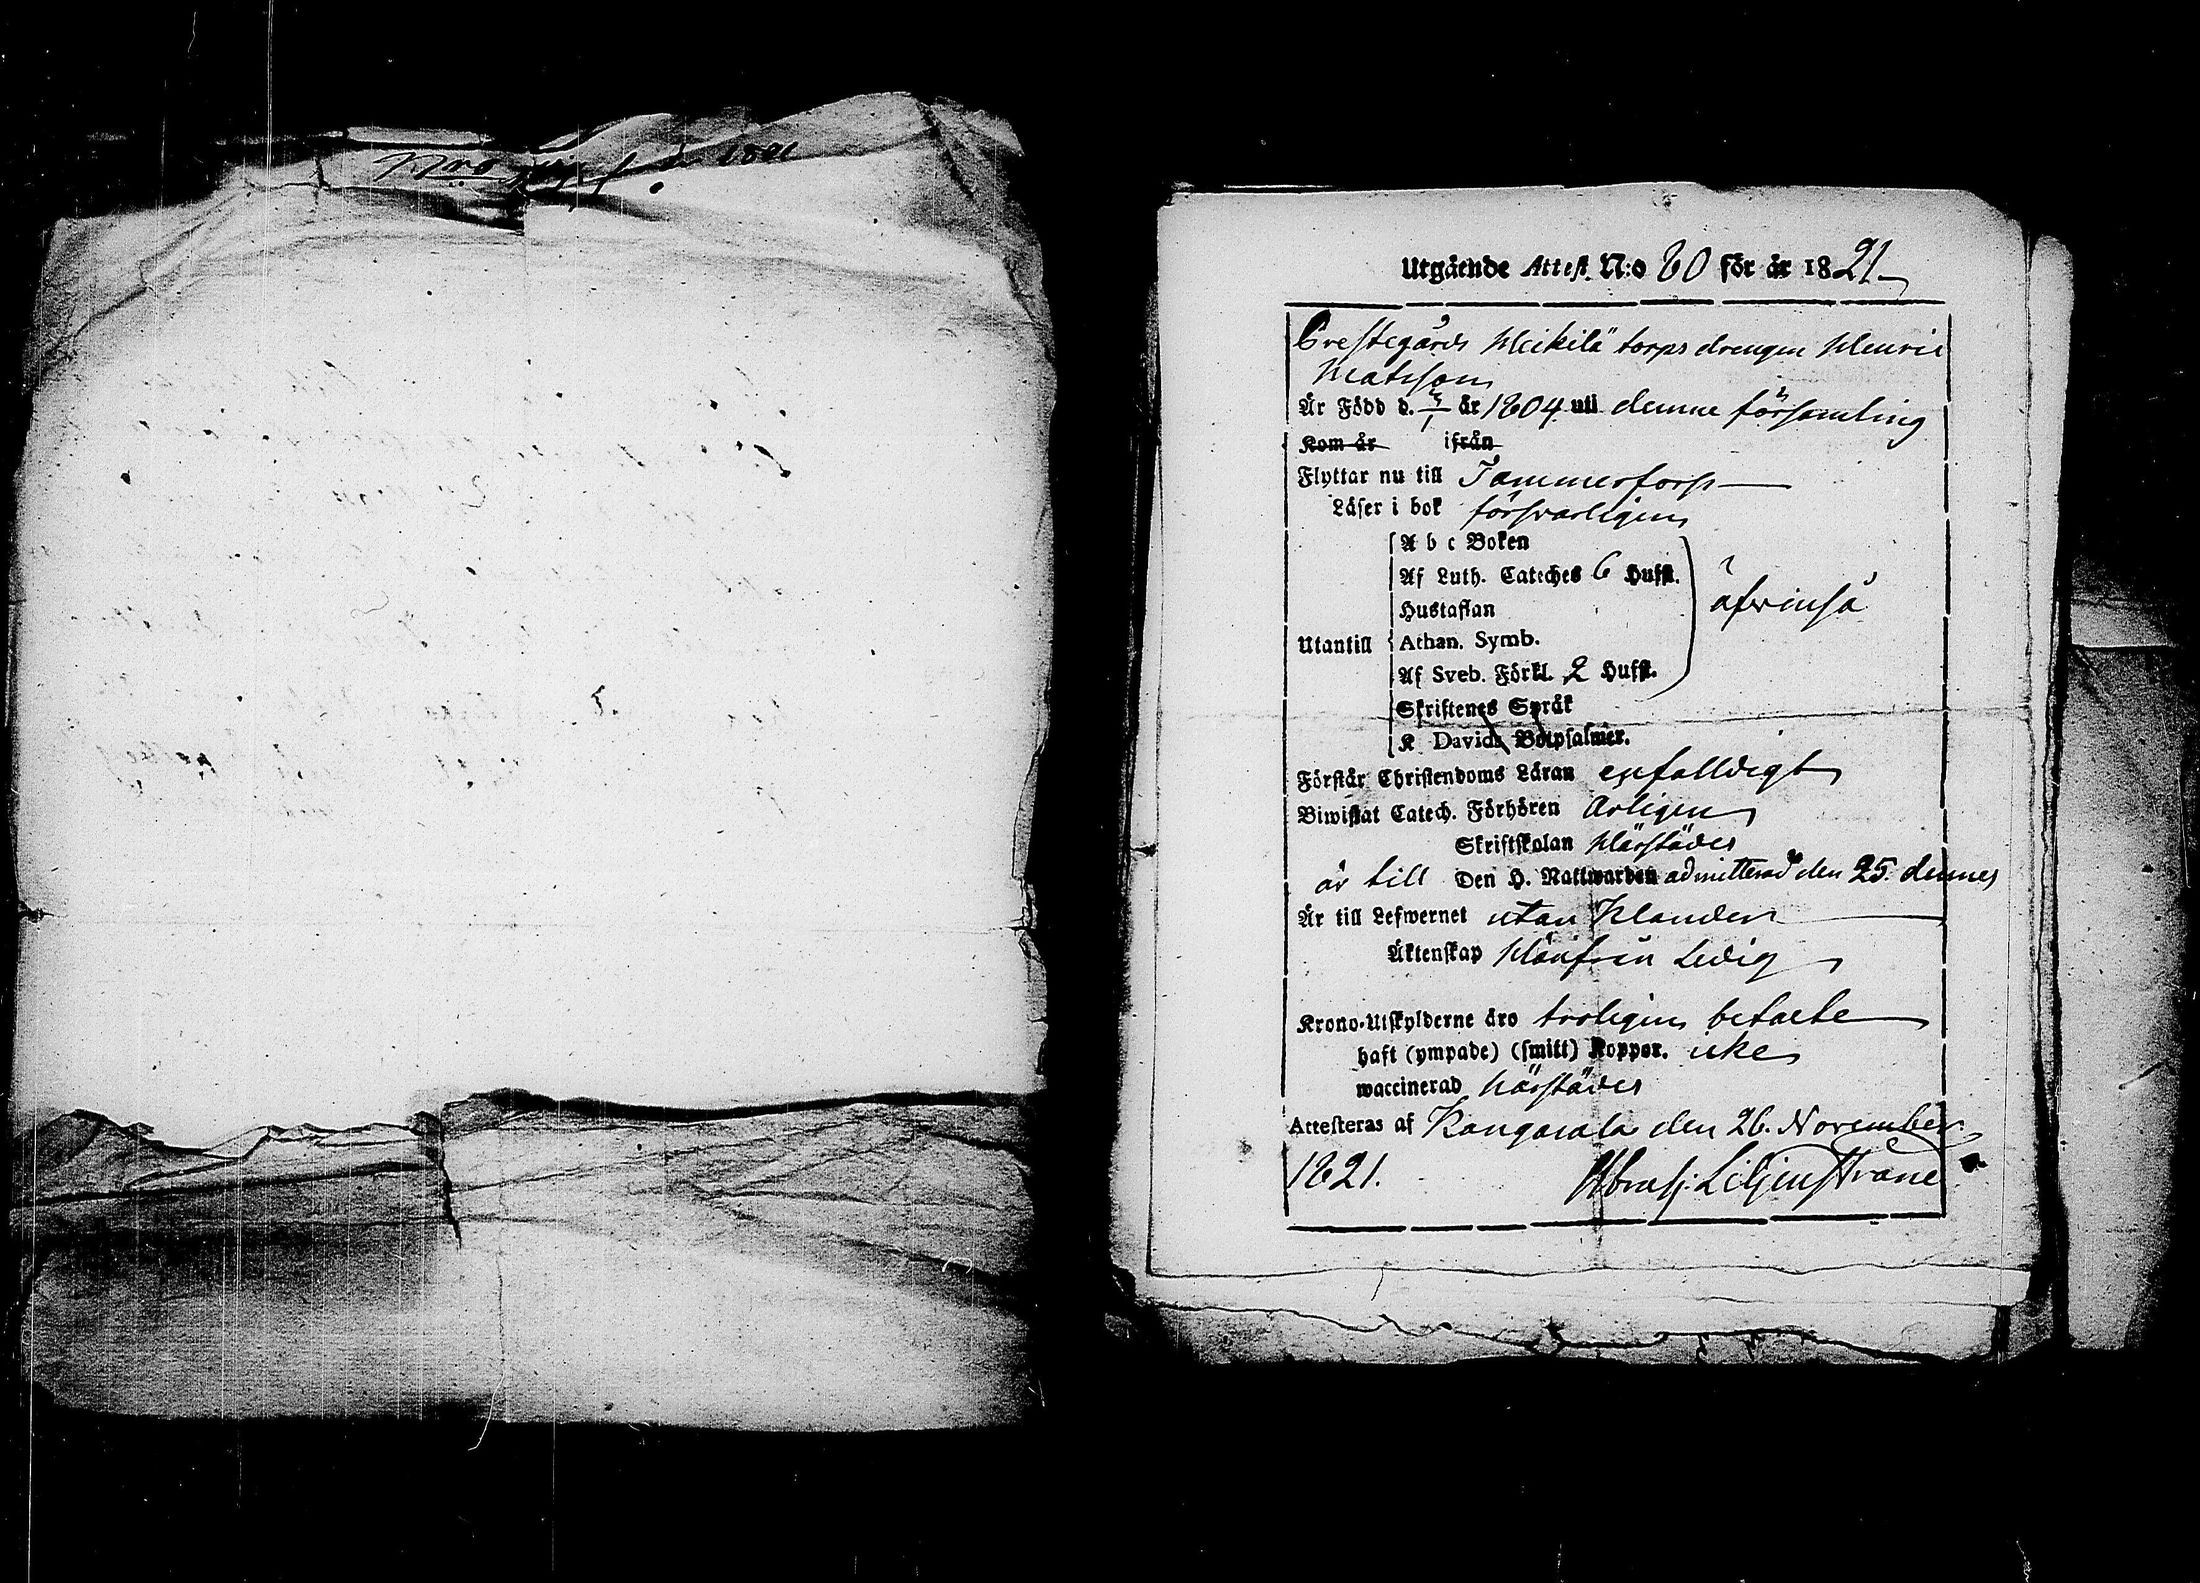 Utgående Attest. N:o 80 för år 1821
Prestegårds Heikilä torps drengen Henric
Matsson
Är Född d. 3/1 år 1804 uti denne församling
Kom år ifrån
Flyttar nu till Tammerfors
Läser i bok försvarligen
A b c Boken
Af Luth. Cateches 6 Hufst.
Hustaflan
äfvenså
Utantill Athan. Symb.
Af Sveb. Förkl. 2 Hufst.
Skriftenes Språk
K Davids Botpsalmer.
Förstår Christendoms Läran enfalldigt
Biwistat Catech. Förhören årligen
Skriftskolan härstädes
är till Den H. Nattwarden admitterad den 25. dennes
Är till Lefwernet utan klander
Äktenskap härifrån Ledig
Krono-Utskylderne äro troligen betalte
haft (ympade) (smitt) Koppor. icke
waccinerad härstädes
Attesteras af Kangasala den 26. November
1821. Abrah. Liljenstrane